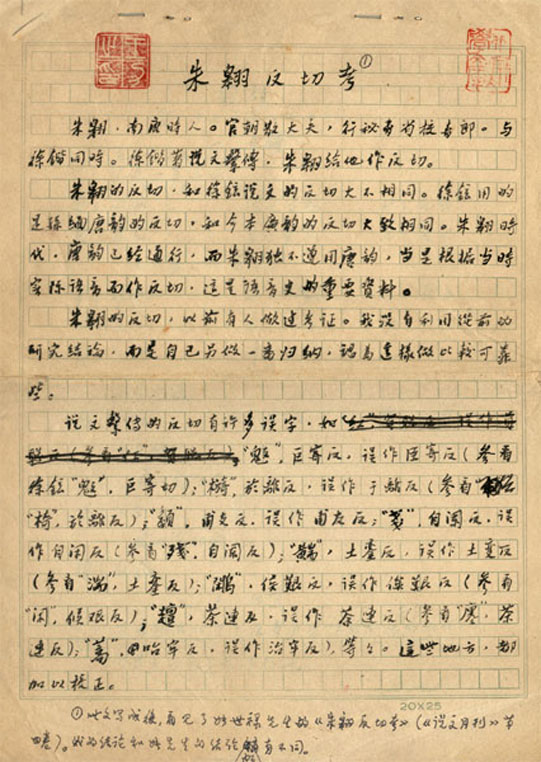 朱翱反切考①
朱翱,南唐時人。官朝散大夫,行祕书省校书郎。与
徐锴同時。徐锴著说文繫傳,朱翱给他作反切。
朱翱的反切,和徐铉说文的反切大不相同。徐铉用的
是孫愐唐韵的反切,和今本廣韵的反切大致相同。朱翱時
代,唐韵已经通行,而朱翱独不遵用唐韵,当是根据当時
实际语音而作反切,这是语音史的重要資料。
朱翱的反切,以前有人做过考证。我没有利用從前的
研究结論,而是自己另做一番归纳,認為這樣做比較可靠
些。
说文繫傳的反切有许多误字,如
"鬾",巨寄反,误作臣寄反(参看
徐铉"鬾",巨寄切);"檹",於離反,误作于離反(参看
"椅",於離反);甫文反,误作甫友反;自闌反,误
作自闲反(参看"殘",自闌反);"貒",土鸾反,误作土变反
(参看"湍",土鸾反);"鷴",侯艱反,误作俟艱反(参看
"闲",侯艰反);茶連反(参看茶
連反);"蒿",呼哈牢反,误作治牢反),等々。这些地方,都
加以校正。
20×25
①此文写成後,看见了姚世禄先生的《朱翱反切考》(《说文月刊》第
四卷)。我的结论和姚先生的结论稍有不同。